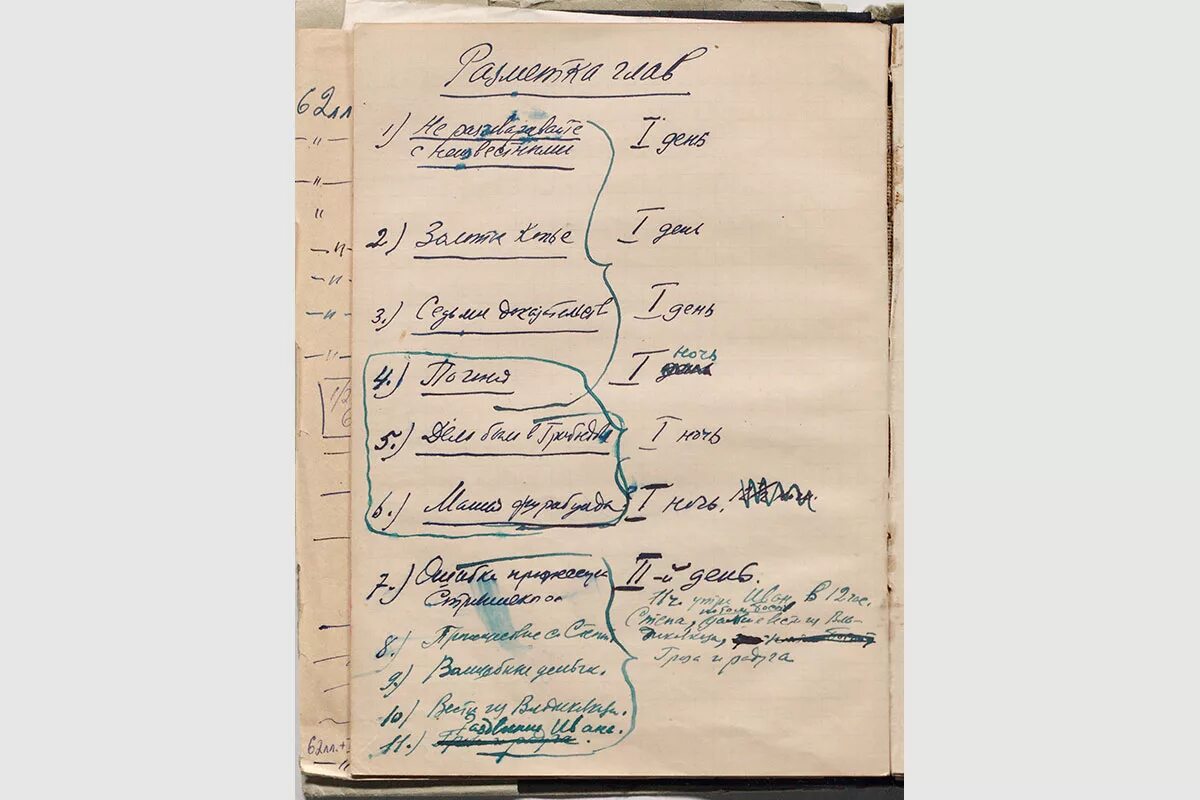 Разметка глав
62 лл
1) Не разговаривайте
с неизвестными
I день
2) Золотое Копье
I день
3.) Седьмое доказательство
I день
4.) Погоня
I ночь
5.) Дело было в Грибоедове
I ночь
6.) Маша фурабунда
I ночь.
7.) Ошибка профессора
Стравинского
II-й день.
11 ч. утра Иван. В 12 час.
Степа, потом
Вла-
дикавказа,
Гроза и радуга
8.) Происшествие со Степой.
9.) Волшебные деньги.
10) Вести из Владикавказа.
Раздвоение Ивана.
11.) Гроза и радуга.
62 лл.+